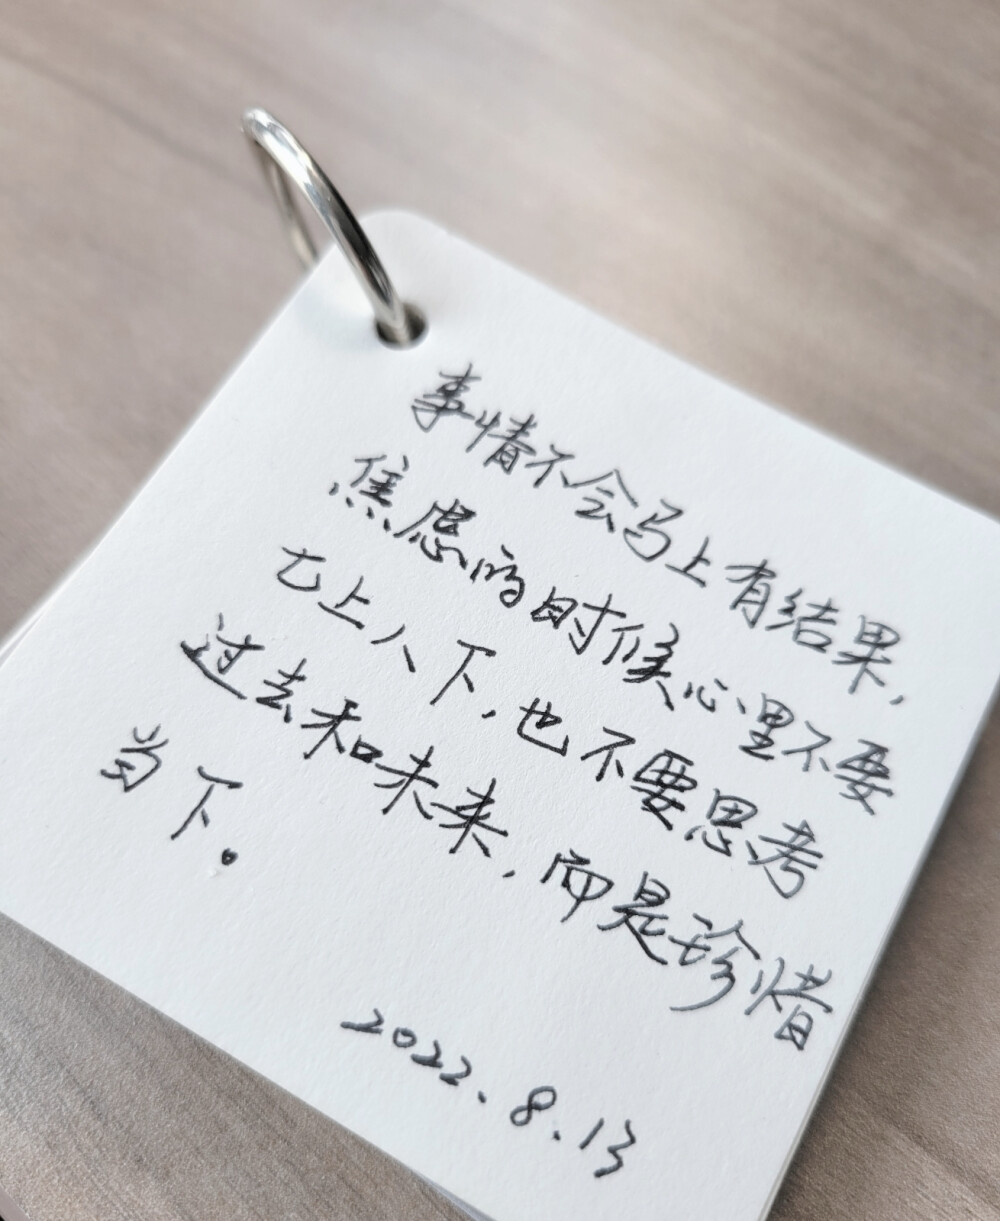 事情不会马上有结果,
焦虑的时候心里不要
七上八下,也不要思考
过去和未来,而是珍惜
当下。
2022.8.13